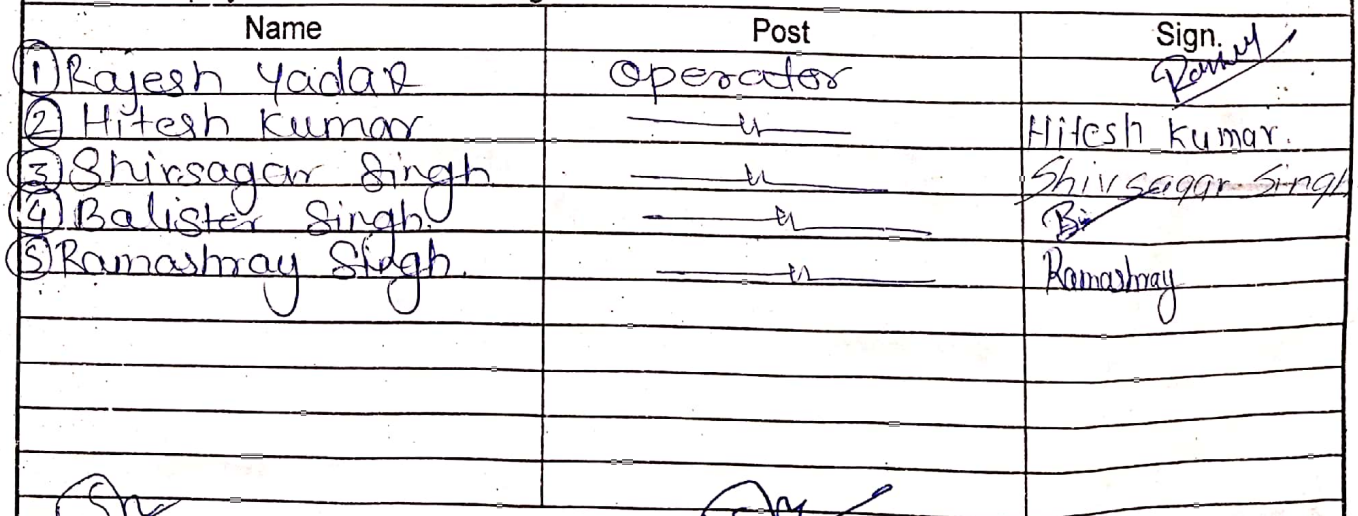 Name Post Sign.
① Rajesh Yadav Operator
② Hitesh Kumar —〃— Hitesh Kumar.
③ Shivsagar Singh —〃— Shivsagar Singh
④ Balister Singh. —〃—
⑤ Ramashray Singh. —〃— Ramashray